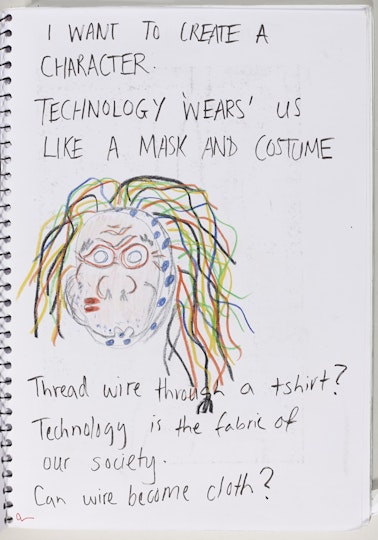 I WANT TO CREATE A
CHARACTER.
TECHNOLOGY 'WEARS' US
LIKE A MASK AND COSTUME
Thread wire through a tshirt?
Technology is the fabric of
our society.
Can wire become cloth?